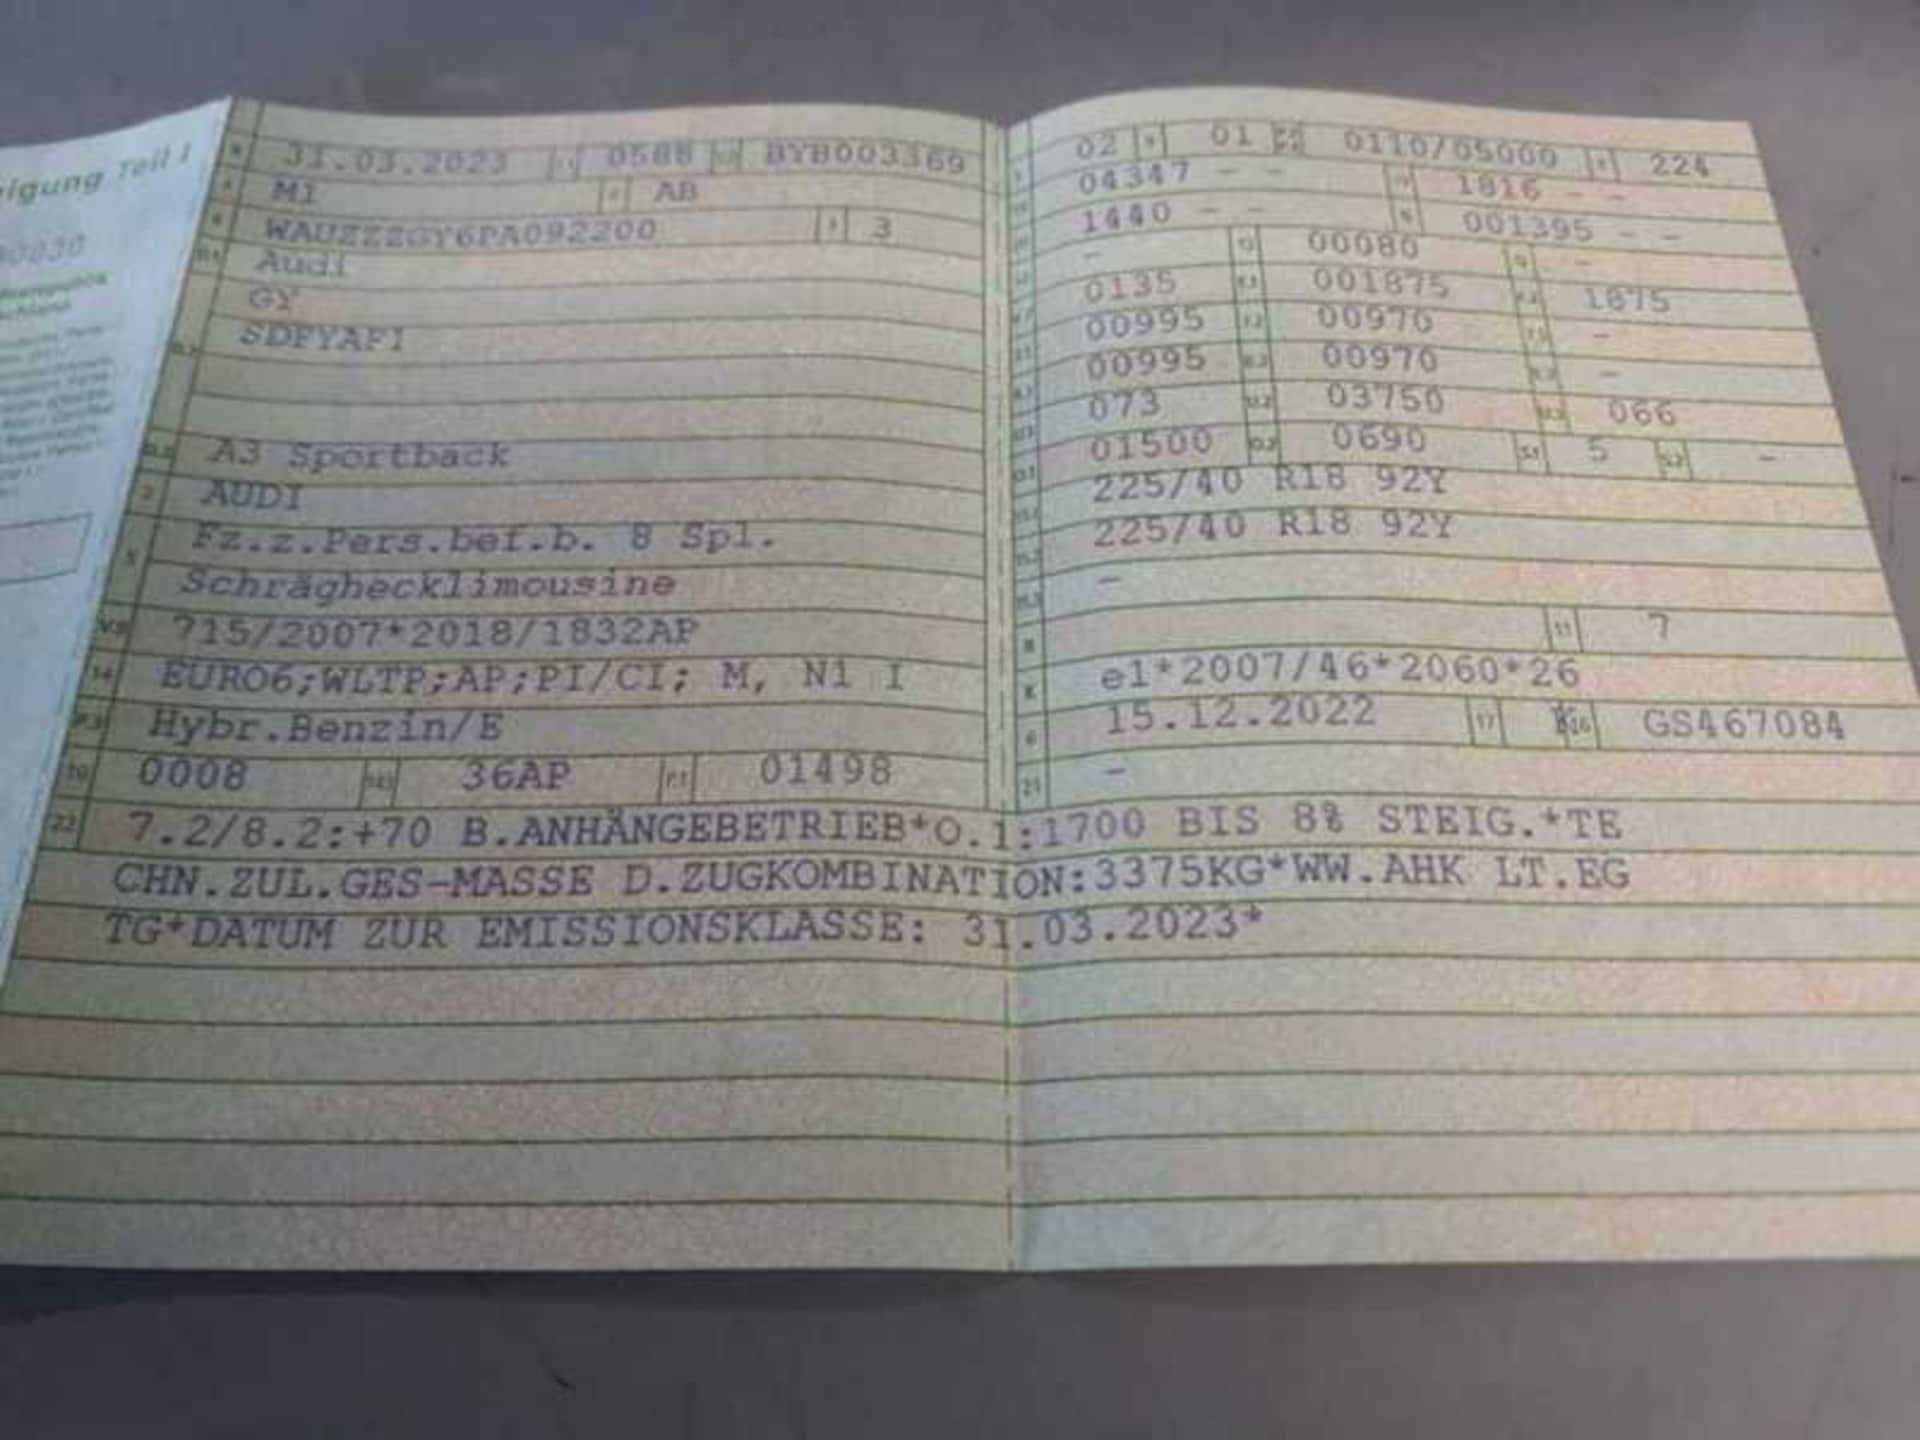 eigung Teil I
31.03.2023 0588 BYB003369
M1 AB
WAUZZZGY6PA092200 3
Audi
GY
SDFYAF1
A3 Sportback
AUDI
Fz.z.Pers.bef.b. 8 Spl.
Schräghecklimousine
715/2007*2018/1832AP
EURO6;WLTP;AP;PI/CI; M, N1 I
Hybr.Benzin/E
10 0008 36AP P.1 01498
02 01 0110/05000 224
04347 - - 1816 - -
1440 - - 001395 - -
- 00080 -
0135 001875 1875
00995 00970 -
00995 00970 -
073 03750 066
01500 0690 S.1 5 S.2 -
225/40 R18 92Y
225/40 R18 92Y
-
R 11 7
K e1*2007/46*2060*26
6 15.12.2022 17 16 GS467084
21 -
22 7.2/8.2:+70 B.ANHÄNGEBETRIEB*O.1:1700 BIS 8% STEIG.*TE
CHN.ZUL.GES-MASSE D.ZUGKOMBINATION:3375KG*WW.AHK LT.EG
TG*DATUM ZUR EMISSIONSKLASSE: 31.03.2023*